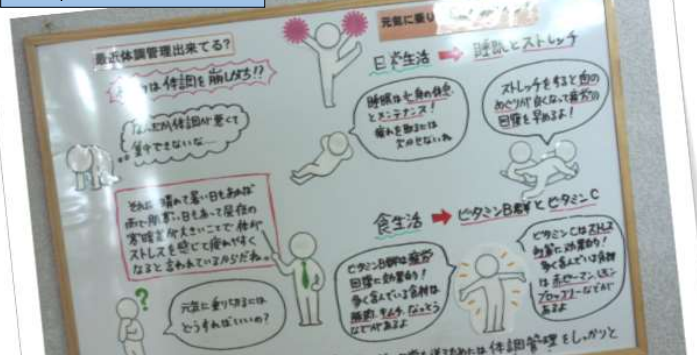 最近体調管理出来てる?
は体調を崩しがち!?
なんだか体調が悪くて
集中できないな…
それは晴れて暑い日もあれば
雨で肌寒い日もあって昼夜の
寒暖差が大きいことで体が
ストレスを感じて疲れやすく
なると言われているからだね。
?
元気に乗り切るには
どうすればいいの?
元気に乗り
日常生活 ➡ 睡眠とストレッチ
睡眠は心身の休息
とメンテナンス!
疲れを取るには
欠かせないね
ストレッチをすると血の
めぐりが良くなって疲労の
回復を早めるよ!
食生活 ➡ ビタミンB群とビタミンC
ビタミンB群は疲労
回復に効果あり!
多く含んでいる食材は
豚肉、キムチ、なっとう
などがあるよ
ビタミンCはストレス
に効果あり!
多く含んでいる食材
はピーマン、レモン
ブロッコリーなどが
あるよ
体調管理をしっかりと